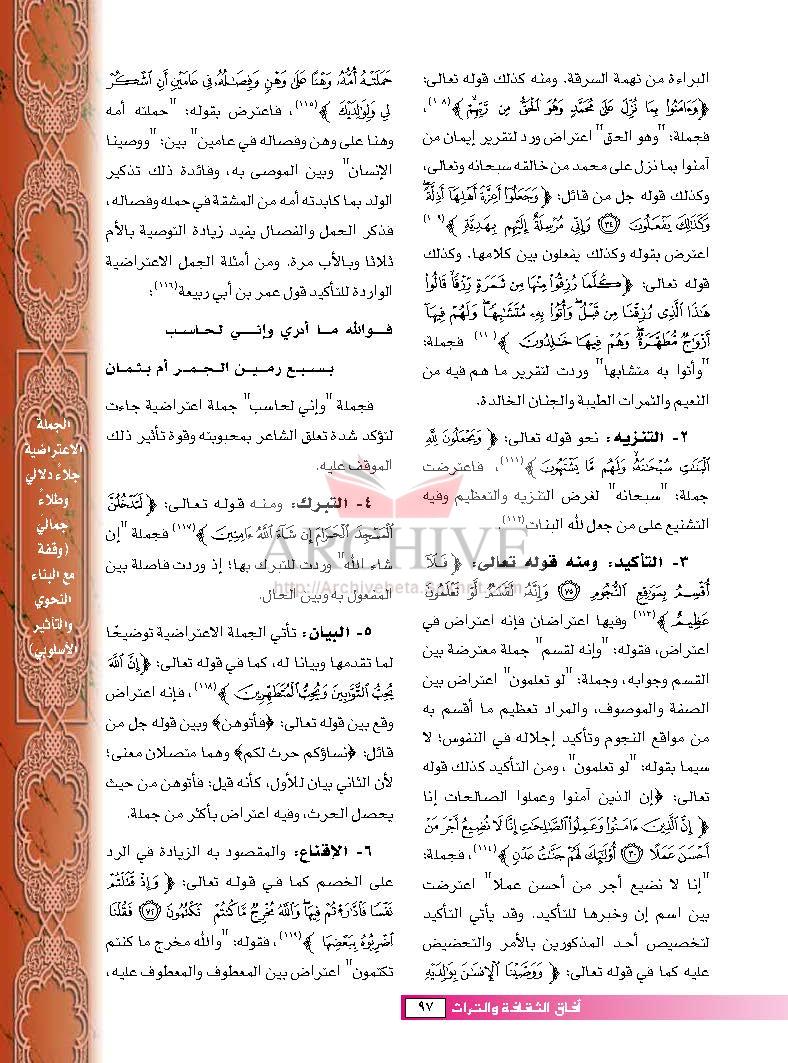 البراءة من تهمة السرقة. ومنه كذلك قوله تعالى:
﴿وَءَامَنُوا بِمَا نُزِّلَ عَلَىٰ مُحَمَّدٍ وَهُوَ الْحَقُّ مِن رَّبِّهِمْ﴾(١٠٨)،
فجملة: "وهو الحق" اعتراض ورد لتقرير إيمان من
آمنوا بما نزل على محمد من خالقه سبحانه وتعالى،
وكذلك قوله جل من قائل: ﴿وَجَعَلُوا أَعِزَّةَ أَهْلِهَا أَذِلَّةً
وَكَذَٰلِكَ يَفْعَلُونَ ٣٤ وَإِنِّي مُرْسِلَةٌ إِلَيْهِم بِهَدِيَّةٍ﴾(١٠٩)
اعترض بقوله وكذلك يفعلون بين كلامها. وكذلك
قوله تعالى: ﴿كُلَّمَا رُزِقُوا مِنْهَا مِن ثَمَرَةٍ رِّزْقًا قَالُوا
هَٰذَا الَّذِي رُزِقْنَا مِن قَبْلُ وَأُتُوا بِهِ مُتَشَابِهًا وَلَهُمْ فِيهَا
أَزْوَاجٌ مُّطَهَّرَةٌ وَهُمْ فِيهَا خَالِدُونَ﴾(١١٠) فجملة:
"وأتوا به متشابها" وردت لتقرير ما هم فيه من
النعيم والثمرات الطيبة والجنان الخالدة.
٢- التنزيه: نحو قوله تعالى: ﴿وَيَجْعَلُونَ لِلَّهِ
الْبَنَاتِ سُبْحَانَهُ وَلَهُم مَّا يَشْتَهُونَ﴾(١١١)، فاعترضت
جملة: "سبحانه" لغرض التنزيه والتعظيم وفيه
التشنيع على من جعل لله البنات(١١٢).
٣- التأكيد: ومنه قوله تعالى: ﴿فَلَا
أُقْسِمُ بِمَوَاقِعِ النُّجُومِ ٧٥ وَإِنَّهُ لَقَسَمٌ لَّوْ تَعْلَمُونَ
عَظِيمٌ﴾(١١٣) وفيها اعتراضان فإنه اعتراض في
اعتراض، فقوله: "وإنه لقسم" جملة معترضة بين
القسم وجوابه، وجملة: "لو تعلمون" اعتراض بين
الصفة والموصوف، والمراد تعظيم ما أقسم به
من مواقع النجوم وتأكيد إجلاله في النفوس؛ لا
سيما بقوله: "لو تعلمون"، ومن التأكيد كذلك قوله
تعالى: ﴿إن الذين آمنوا وعملوا الصالحات إنا
﴿إِنَّ الَّذِينَ ءَامَنُوا وَعَمِلُوا الصَّالِحَاتِ إِنَّا لَا نُضِيعُ أَجْرَ مَنْ
أَحْسَنَ عَمَلًا ٣٠ أُولَٰئِكَ لَهُمْ جَنَّاتُ عَدْنٍ﴾(١١٤)، فجملة:
"إنا لا نضيع أجر من أحسن عملا" اعترضت
بين اسم إن وخبرها للتأكيد. وقد يأتي التأكيد
لتخصيص أحد المذكورين بالأمر والتحضيض
عليه كما في قوله تعالى: ﴿وَوَصَّيْنَا الْإِنسَانَ بِوَالِدَيْهِ
حَمَلَتْهُ أُمُّهُ وَهْنًا عَلَىٰ وَهْنٍ وَفِصَالُهُ فِي عَامَيْنِ أَنِ اشْكُرْ
لِي وَلِوَالِدَيْكَ﴾(١١٥)، فاعترض بقوله: "حملته أمه
وهنا على وهن وفصاله في عامين" بين: "ووصينا
الإنسان" وبين الموصى به، وفائدة ذلك تذكير
الولد بما كابدته أمه من المشقة في حمله وفصاله،
فذكر الحمل والفصال يفيد زيادة التوصية بالأم
ثلاثا وبالأب مرة. ومن أمثلة الجمل الاعتراضية
الواردة للتأكيد قول عمر بن أبي ربيعة(١١٦):
فوالله ما أدري وإني لحاسب
بسبع رمين الجمر أم بثمان
فجملة "وإني لحاسب" جملة اعتراضية جاءت
لتؤكد شدة تعلق الشاعر بمحبوبته وقوة تأثير ذلك
الموقف عليه.
٤- التبرك: ومنه قوله تعالى: ﴿لَتَدْخُلُنَّ
الْمَسْجِدَ الْحَرَامَ إِن شَاءَ اللَّهُ ءَامِنِينَ﴾(١١٧) فجملة "إن
شاء الله" وردت للتبرك بها؛ إذ وردت فاصلة بين
المفعول به وبين الحال.
٥- البيان: تأتي الجملة الاعتراضية توضيحًا
لما تقدمها وبيانا له، كما في قوله تعالى: ﴿إِنَّ اللَّهَ
يُحِبُّ التَّوَّابِينَ وَيُحِبُّ الْمُتَطَهِّرِينَ﴾(١١٨)، فإنه اعتراض
وقع بين قوله تعالى: ﴿فأتوهن﴾ وبين قوله جل من
قائل: ﴿نساؤكم حرث لكم﴾ وهما متصلان معنى؛
لأن الثاني بيان للأول، كأنه قيل: فأتوهن من حيث
يحصل الحرث، وفيه اعتراض بأكثر من جملة.
٦- الإقناع: والمقصود به الزيادة في الرد
على الخصم كما في قوله تعالى: ﴿وَإِذْ قَتَلْتُمْ
نَفْسًا فَادَّارَأْتُمْ فِيهَا وَاللَّهُ مُخْرِجٌ مَّا كُنتُمْ تَكْتُمُونَ ٧٢ فَقُلْنَا
اضْرِبُوهُ بِبَعْضِهَا﴾(١١٩)، فقوله: "والله مخرج ما كنتم
تكتمون" اعتراض بين المعطوف والمعطوف عليه،
الجملة
الاعتراضية
جلاءٌ دلالي
وطلاءٌ
جماليّ
(وقفة
مع البناء
النحوي
والتأثير
الأسلوبي)
ARCHIVE
آفاق الثقافة والتراث ٩٧